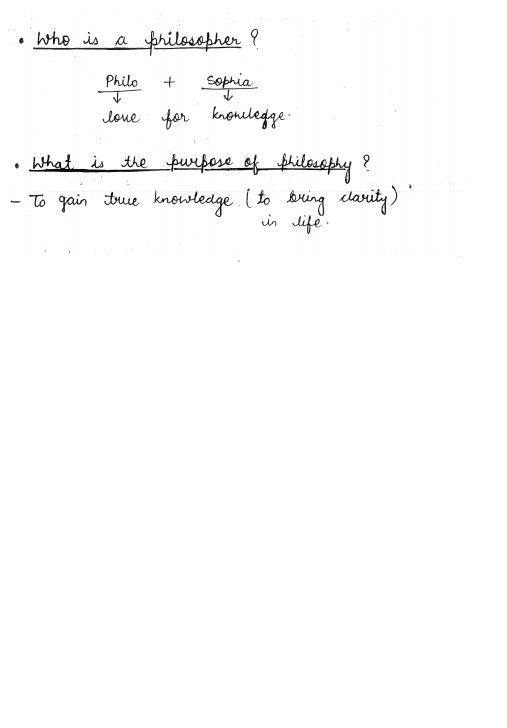 • Who is a philosopher ?
Philo + Sophia
↓ ↓
love for knowledge.
• What is the purpose of philosophy ?
– To gain true knowledge (to bring clarity)
in life.